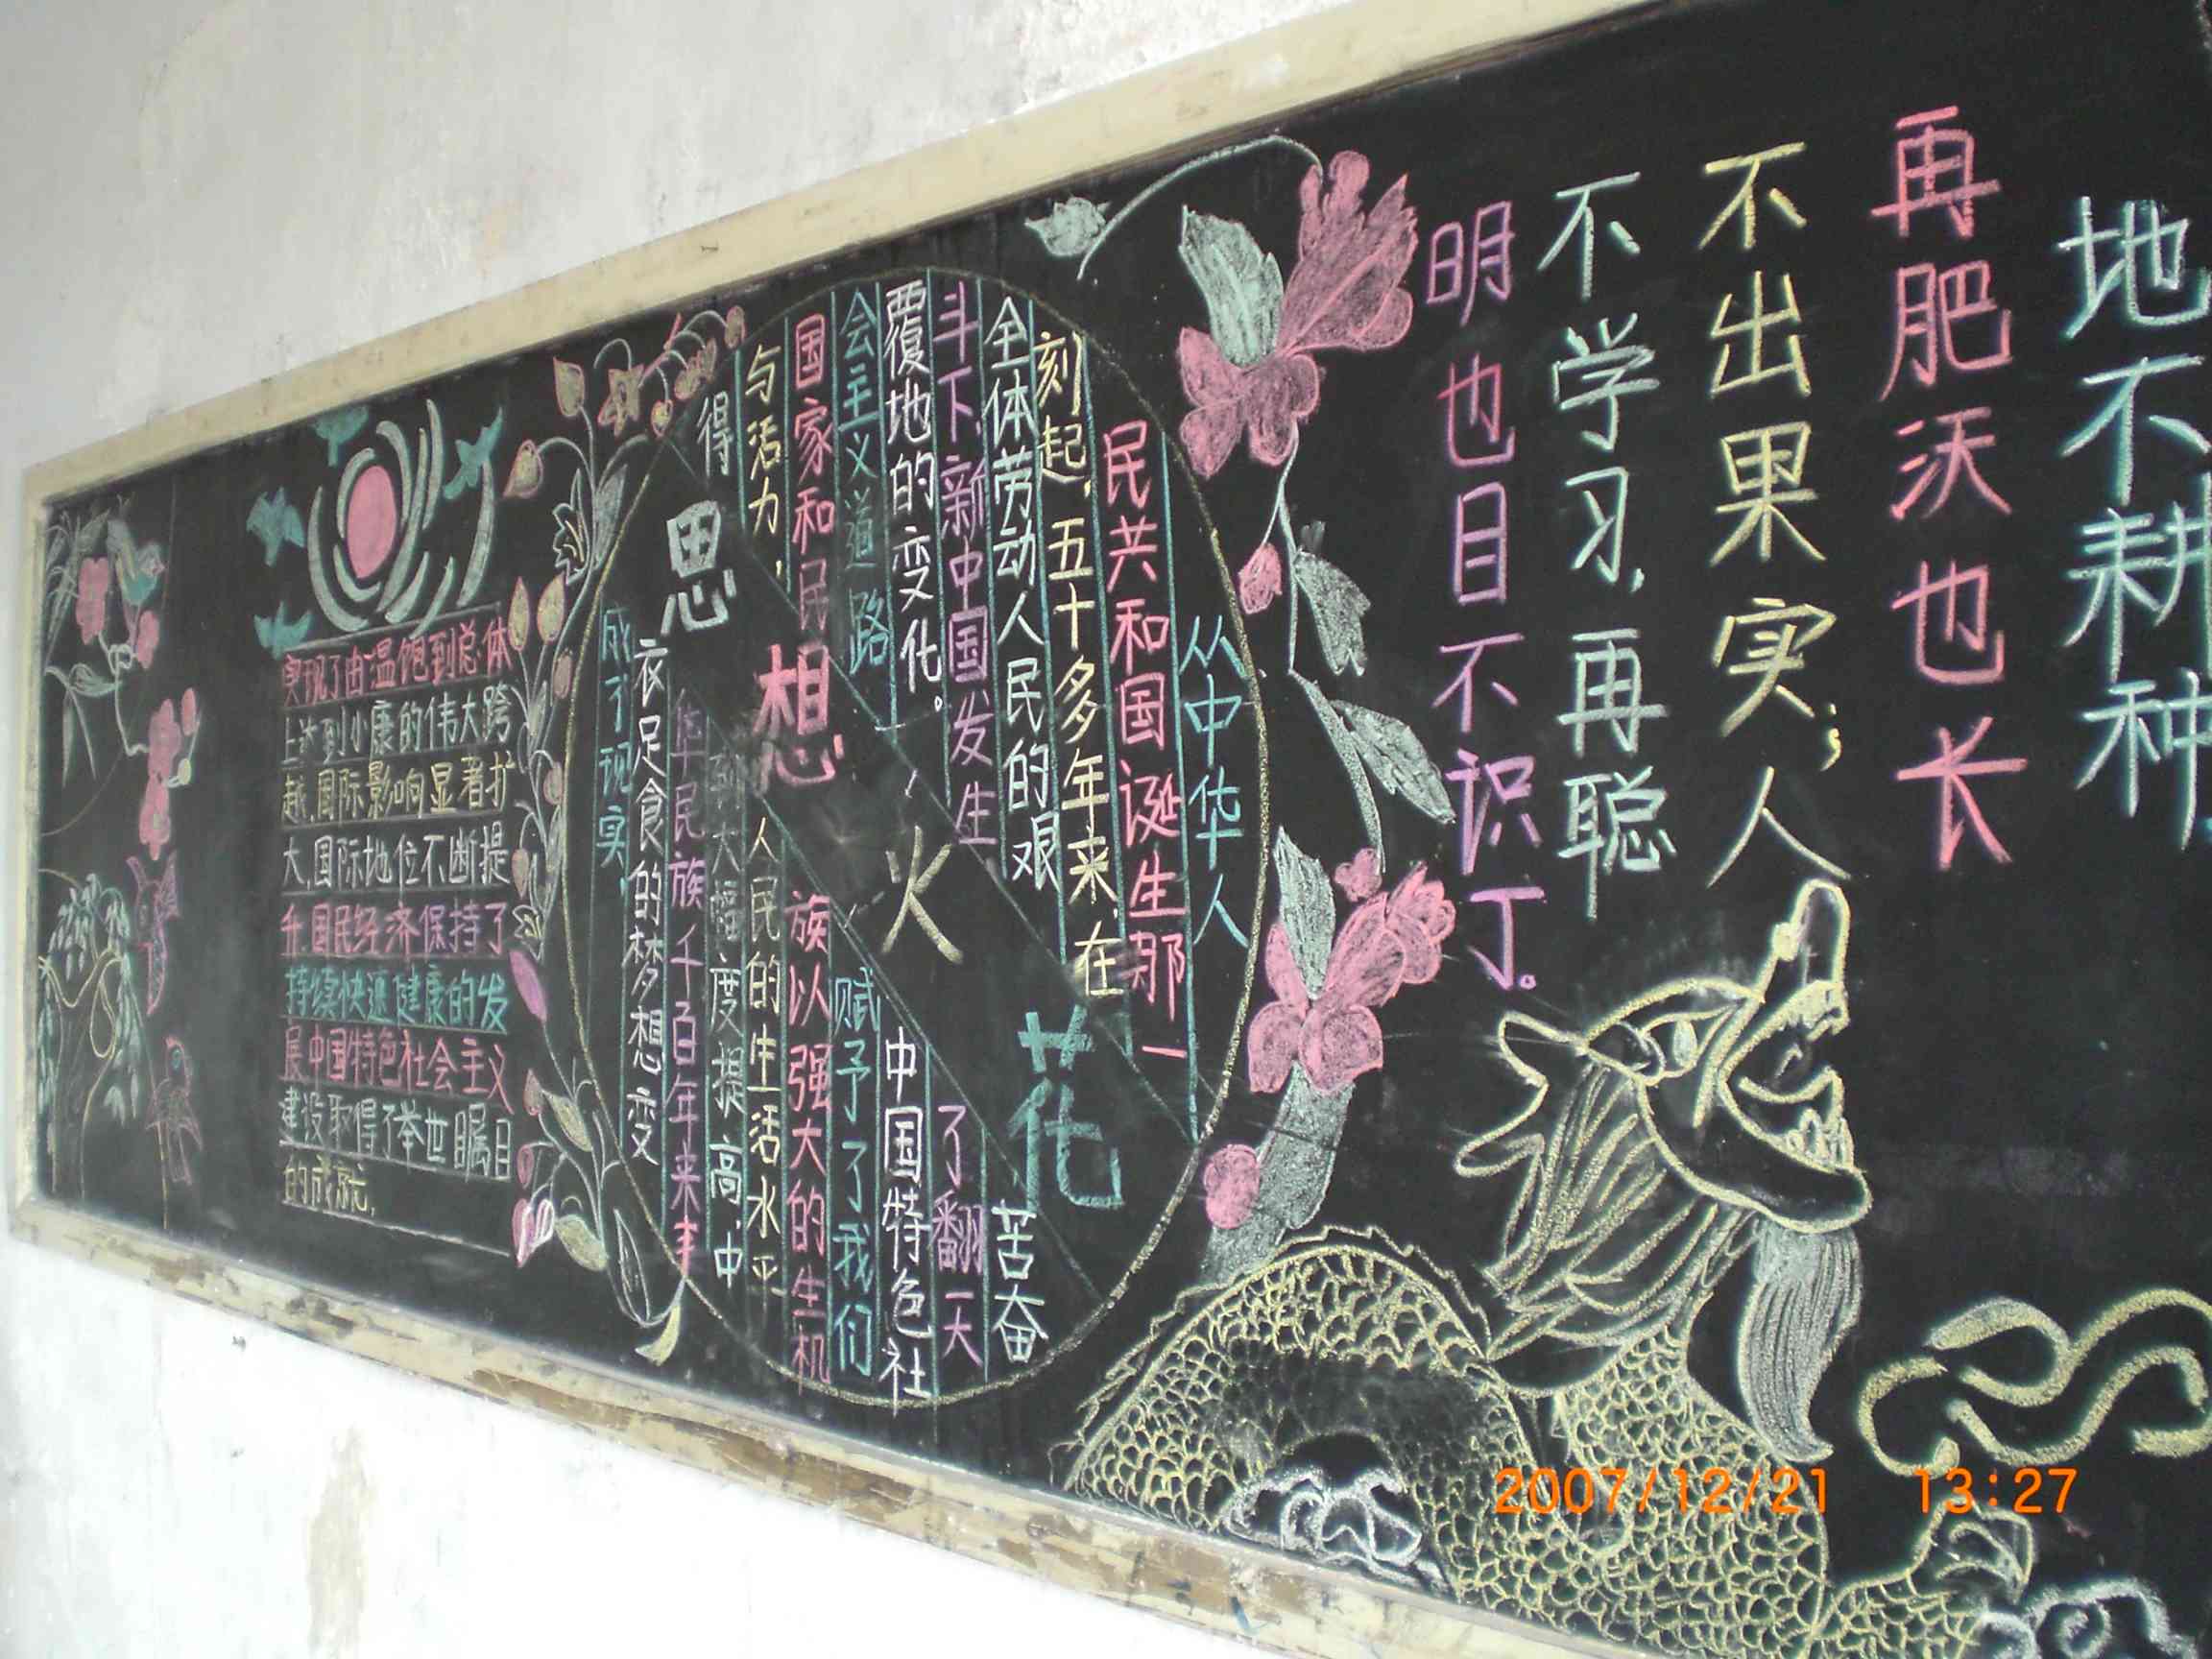 地不耕种
再肥沃也长
不出果实；人
不学习，再聪
明也目不识丁。
思想火花
从中华人
民共和国诞生那一
刻起，五十多年来，在
全体劳动人民的艰苦奋
斗下，新中国发生了翻天
覆地的变化。中国特色社
会主义道路赋予了我们
国家和民族以强大的生机
与活力，人民的生活水平
得到大幅度提高，中
华民族千百年来丰
衣足食的梦想变
成了现实，
实现了由温饱到总体
上达到小康的伟大跨
越，国际影响显著扩
大，国际地位不断提
升，国民经济保持了
持续快速健康的发
展中国特色社会主义
建设取得了举世瞩目
的成就，
2007/12/21 13:27